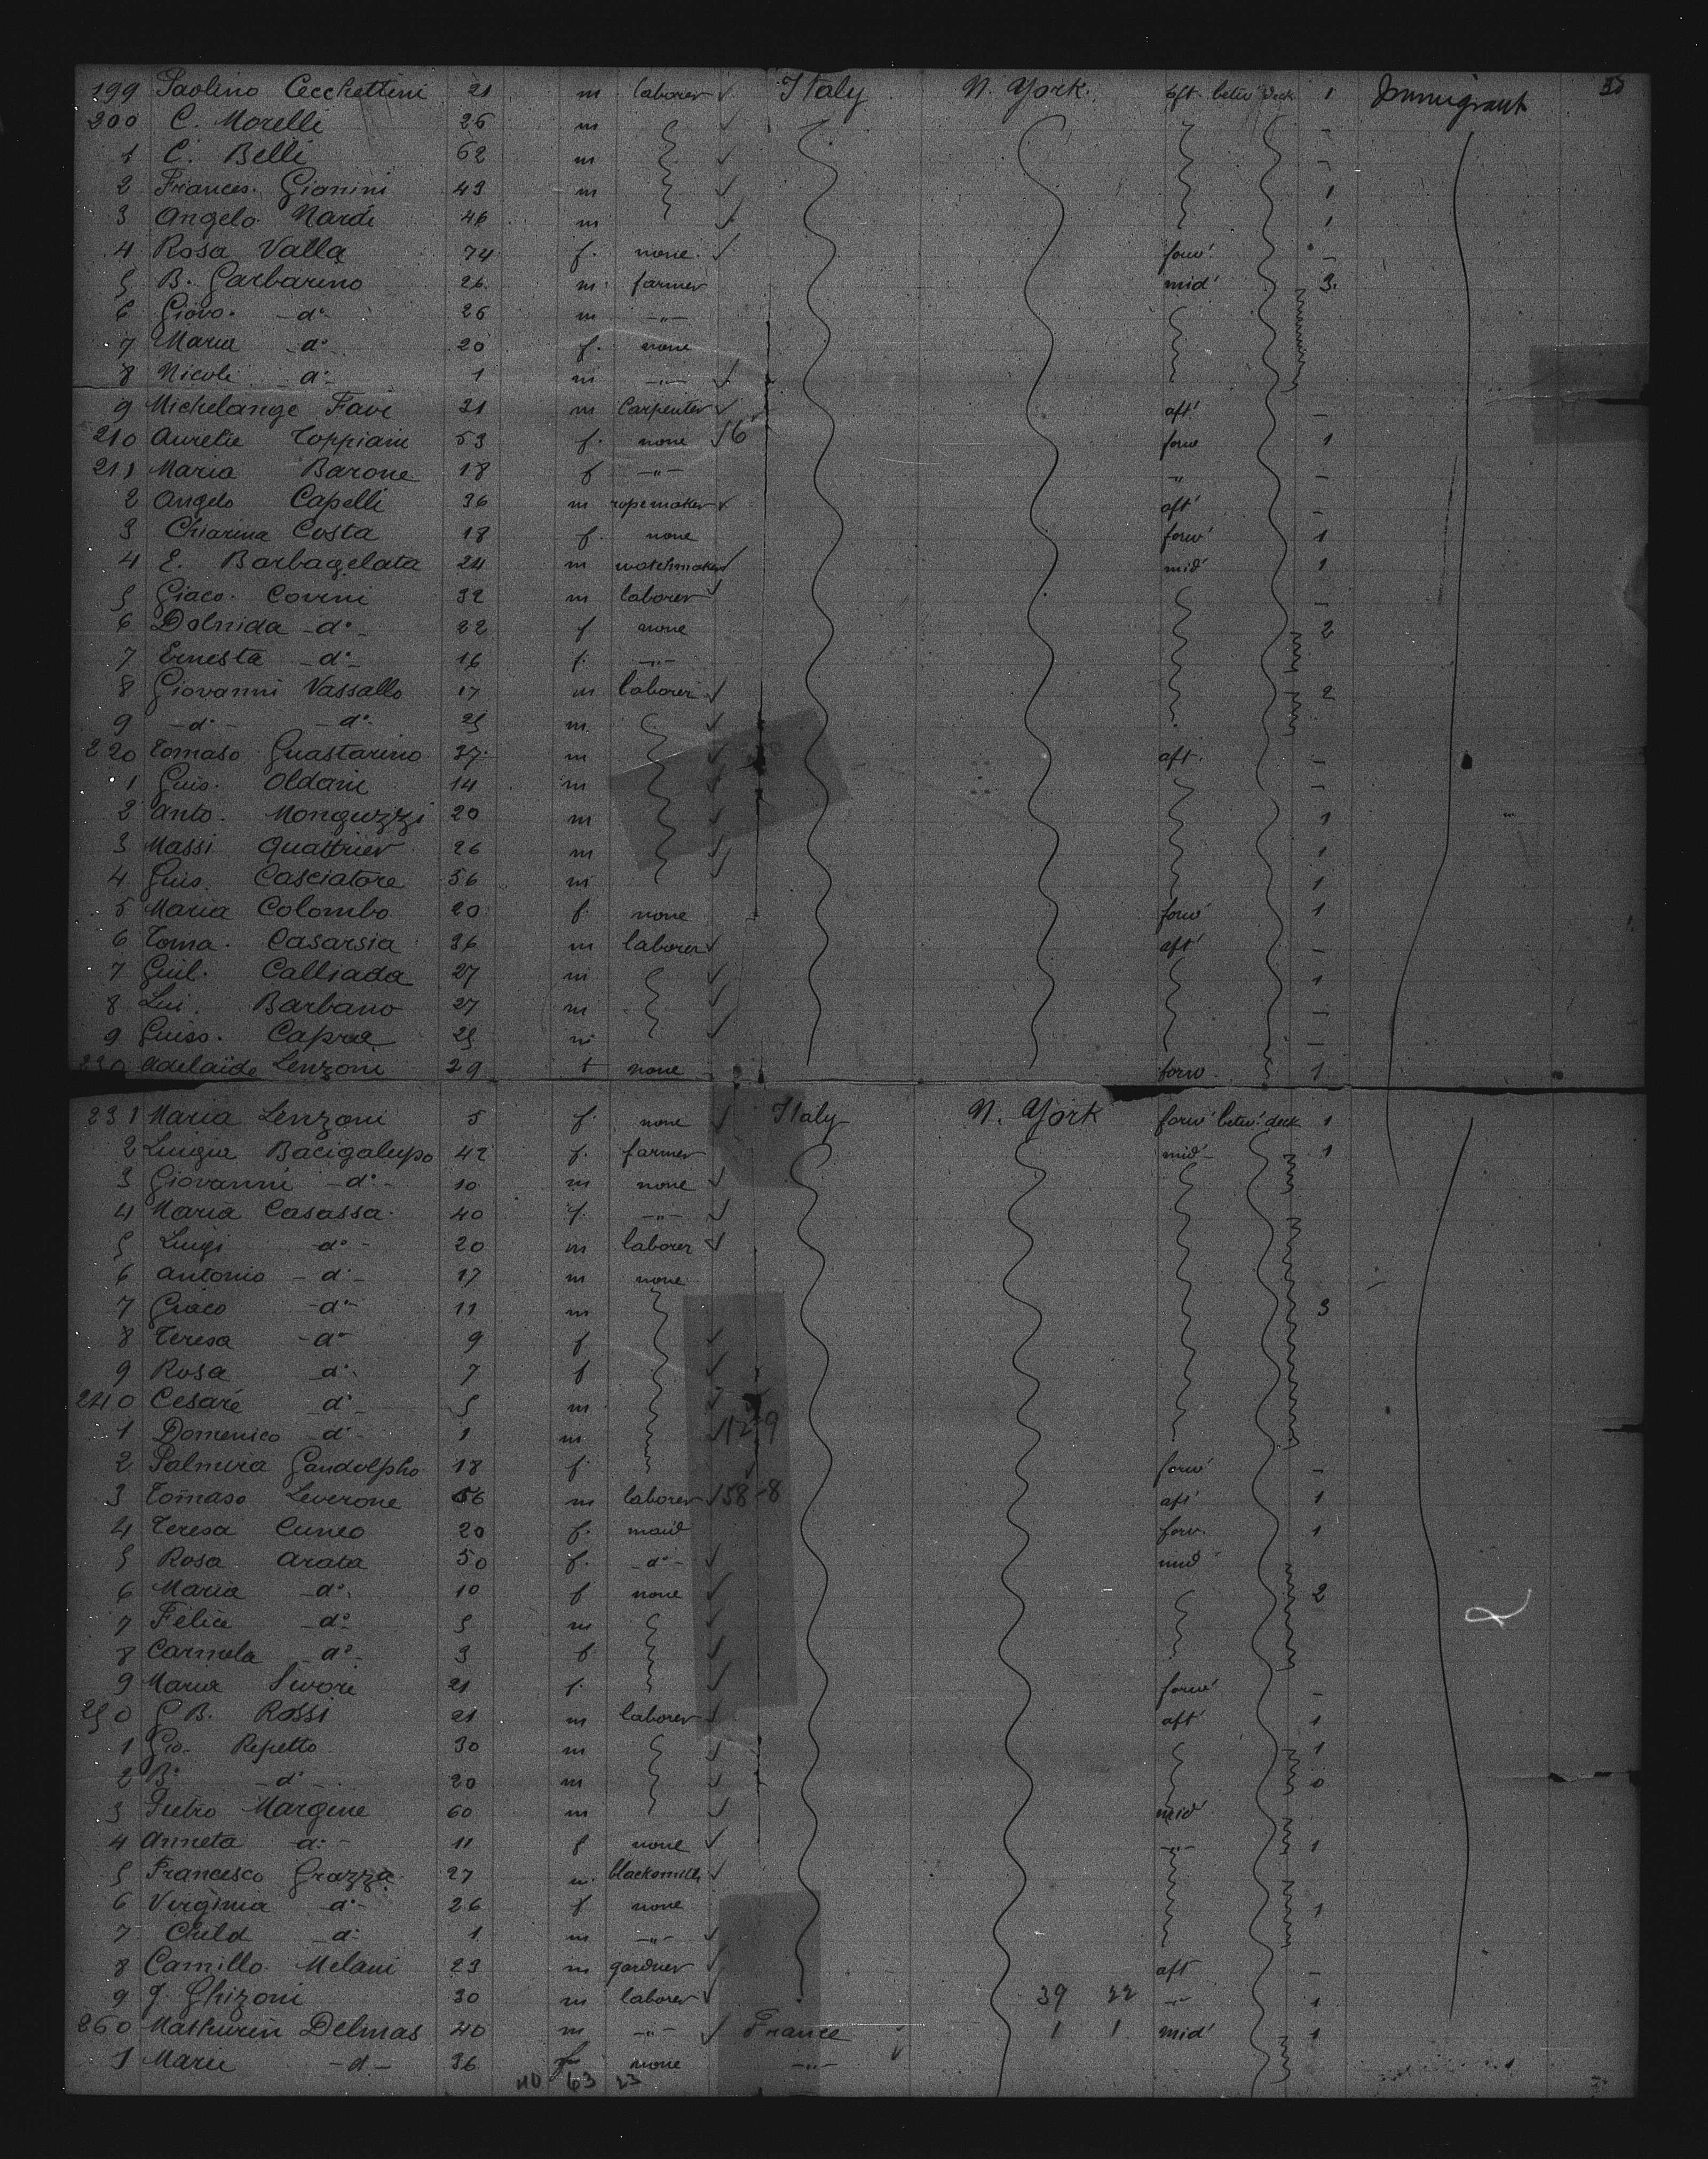 199 Paolino Cecchettini 21 m laborer ✓ Italy N. York. aft. betw. deck 1 Immigrant
200 C. Morelli 26 m ✓ –
1 C. Belli 62 m ✓ –
2 Frances. Gianini 43 m ✓ 1
3 Angelo Nardi 46 m ✓ 1
4 Rosa Valla 74 f. none. ✓ forw' –
5 B. Garbarino 26 m farmer mid' 3.
6 Giovo. -d°- 26 m -"-
7 Maria -d°- 20 f. none
8 Nicoli -d°- 1 m -"- ✓
9 Michelange Favi 31 m Carpenter ✓ aft' –
210 Aurelie Toppiani 53 f. none ✓ 6 forw 1
211 Maria Barone 18 f -"- " –
2 Angelo Capelli 36 m ropemaker ✓ aft' –
3 Chiarina Costa 18 f. none forw' 1
4 E. Barbagelata 24 m watchmaker ✓ mid' 1
5 Giaco. Covini 32 m laborer ✓ –
6 Dolnida -d°- 22 f none 2
7 Ernesta -d°- 16 f. -"-
8 Giovanni Vassallo 17 m laborer ✓ 2
9 -d°- -d°- 25 m. ✓
220 Tomaso Guastarino 37 m ✓ aft. –
1 Guis. Oldani 14 m ✓ –
2 Anto. Monguzzi 20 m ✓ 1
3 Massi Quattrier 26 m ✓ 1
4 Guis. Casciatore 56 m 1
5 Maria Colombo 20 f. none forw' 1
6 Toma. Casarsia 36 m laborer ✓ aft' –
7 Guil. Calliada 27 m ✓ 1
8 Lui. Barbano 27 m ✓ –
9 Guiso. Capra 25 m ✓ –
230 Adelaide Lenzoni 29 f none forw. 1
231 Maria Lenzoni 5 f. none ✓ Italy N. York forw' betw' deck 1
2 Luigia Bacigalupo 42 f. farmer mid- 1
3 Giovanni -d°- 10 m none ✓
4 Maria Casassa 40 f. -"- ✓
5 Luigi -d°- 20 m laborer ✓
6 Antonio -d°- 17 m none
7 Giaco -d°- 11 m 3
8 Teresa -d°- 9 f ✓
9 Rosa d° 7 f ✓
240 Cesare d°- 5 m ✓
1 Domenico -d°- 1 m ✓ 12-9
2 Palmira Gandolpho 18 f. forw' –
3 Tomaso Leverone 56 m laborer ✓ 58-8 aft' 1
4 Teresa Cuneo 20 f. maid forw. 1
5 Rosa Arata 50 f. -d°- ✓ mid
6 Maria -d°- 10 f none ✓ 2
7 Felice -d° 5 m ✓
8 Carmela -d°- 3 f ✓
9 Maria Sivori 21 f. ✓ forw' –
250 G B. Rossi 21 m laborer ✓ aft' 1
1 Gio- Repetto 30 m ✓ 1
2 B. -d°- 20 m ✓ 0
3 Pietro Margine 60 m ✓ mid'
4 Anneta d°- 11 f none ✓ -"- 1
5 Francesco Grazza 27 m. blacksmith ✓
6 Virginia d°- 26 f none 1
7 Child d° 1 m -"- ✓
8 Camillo Melani 23 m gardner ✓ aft –
9 J. Ghizoni 30 m laborer ✓ 39 22 -"- 1
260 Mathurin Delmas 40 m -"- ✓ France 1 1 mid' 1
1 Marie -d- 36 f none -"-
40 63 23